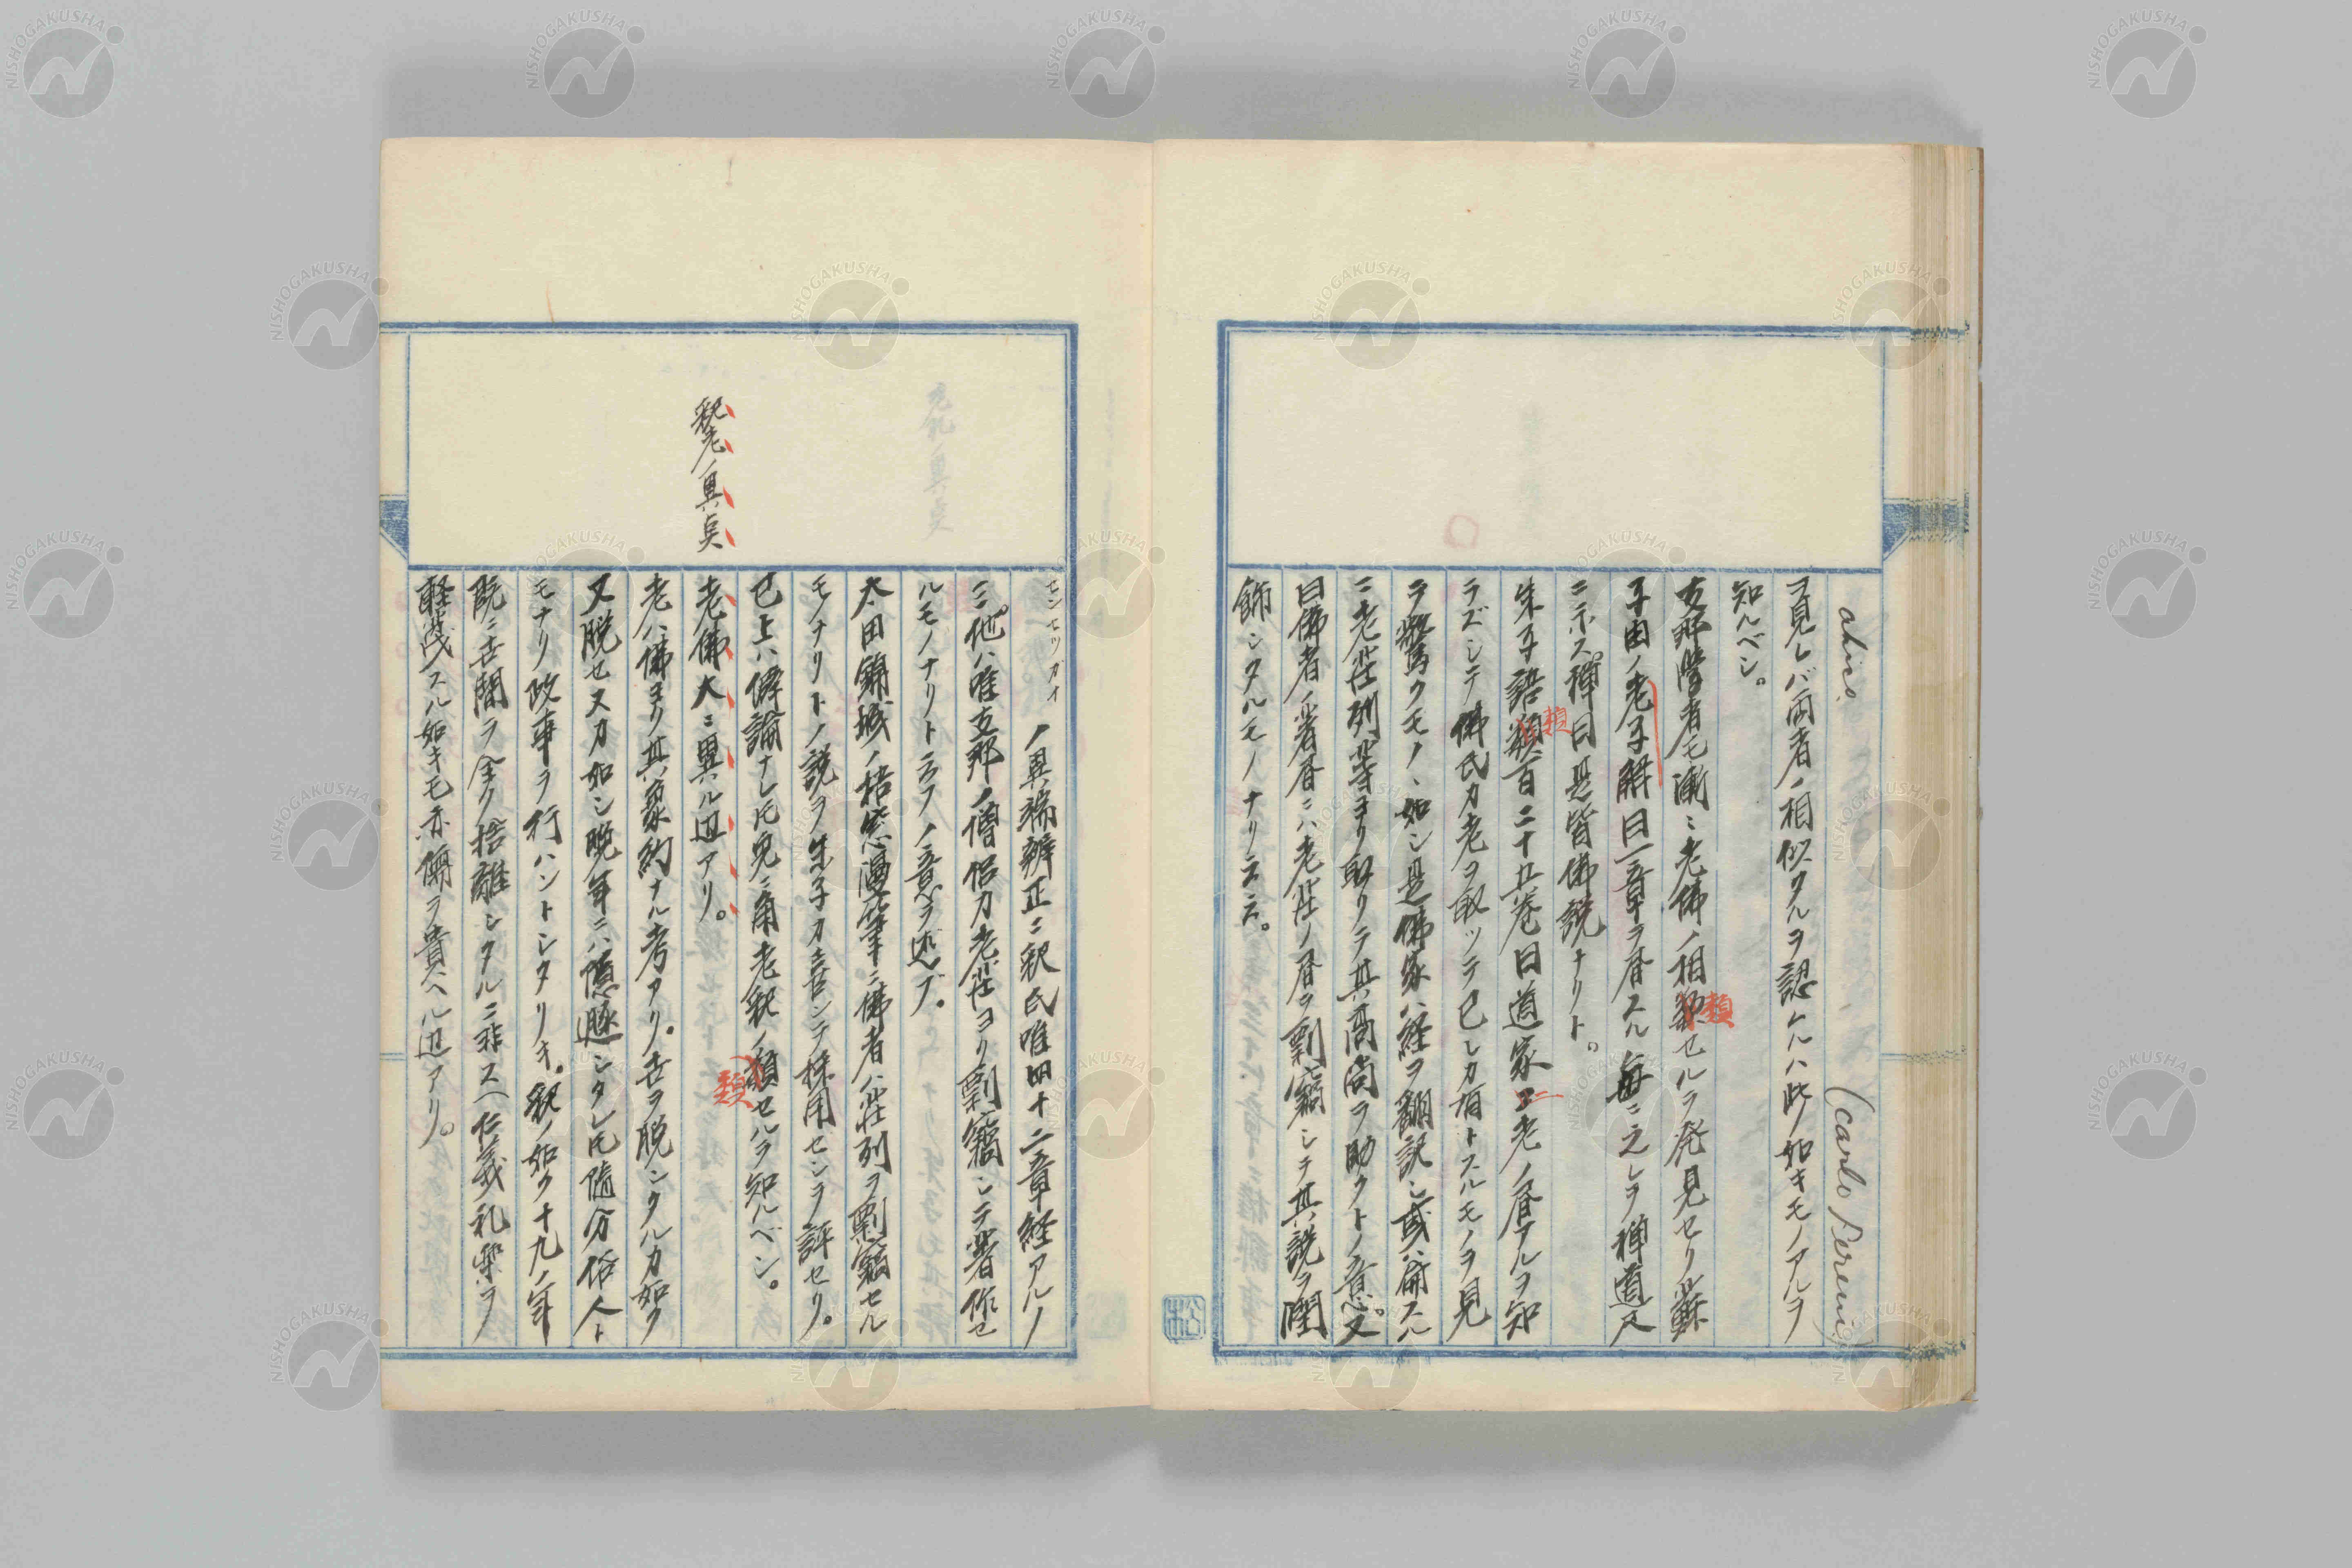 ahico (Carlo Fereini)
ヲ見レバ両者ノ相似タルヲ認ムルハ此ノ如キモノアルヲ
知ルベシ。
支那学者モ漸ニ老佛ノ相類セルヲ発見セリ蘇
子由ノ老子解曰一章ヲ層スル毎ニ之レヲ禅道人
ニ示ス。禅曰是皆佛説ナリト。
朱子語類百二十五巻曰道家ニ老ノ層アルヲ知
ラズシテ佛氏カ老ヲ取ッテ已レカ有トスルモノヲ見
ラ驚クモノヽ如シ是佛家ハ経ヲ翻訳シ或ハ併スル
ニ老荘列等ヨリ取リテ其高尚ヲ助クトノ意。又
曰佛者ノ著層ニハ老荘ノ層ヲ剽竊シテ其説ヲ潤
飾シタルモノナリ云云。
センセツガイ
ノ異端辨正ニ釈氏唯四十二章経アルノ
ミ。他ハ唯支那ノ僧侶カ老荘ヨリ剽竊シテ著作セ
ルモノナリト云フノ意ヲ述ブ。
太田錦城ノ梧窓漫筆ニ佛者ハ荘列ヲ剽竊セル
モノナリトノ説ヲ朱子カ喜ンテ採用センヲ評セリ。
已上ハ僻論ナレ𪜈兎ニ角老釈ノ類セルヲ知ルベシ。
釈老ノ異点
老佛大ニ異ル辺アリ。
老ハ佛ヨリ其家約ナル考アリ。世ヲ脱シタルカ如ク
又脱セヌカ如シ晩年ニハ隠遁シタレ𪜈随分俗人ト
モナリ政事ヲ行ハントシタリキ。釈ノ如ク十九ノ年
既ニ世間ヲ全ク捨離シタルニ非ス仁義礼楽ヲ
軽蔑スル如キモ亦儞ヲ貴ヘル辺アリ。
松